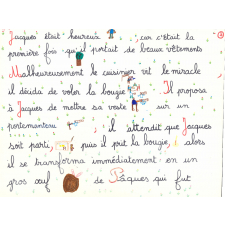 Jacques était heureux , car c'était la
première fois qu'il portait de beaux vêtements
Malheureusement le cuisinier vit le miracle
il décida de voler la bougie. Il proposa
à Jacques de mettre sa veste sur un
portemanteau , il attendit que Jacques
soit parti, puis il prit la bougie, alors
il se transforma immédiatement en un
gros œuf de Pâques qui fut